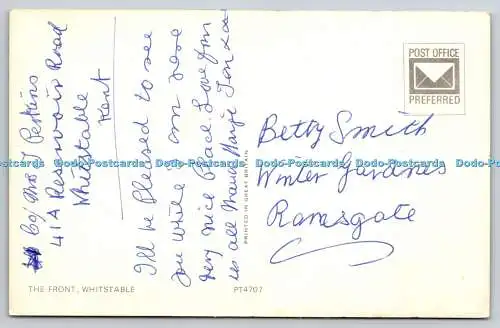 c/o Mrs J Perkins
41A Reservoir Road
Whitstable
Kent
I'll be Pleased to see
you while I am here
very nice Place. Love from
us all
POST OFFICE
PREFERRED
Betty Smith
Winter Gardnes
Ramsgate
PRINTED IN GREAT BRITAIN
THE FRONT, WHITSTABLE
PT4707
Dodo-Postcards Dodo-Postcards Dodo-Postcards Dodo-Postcards Dodo-Postcards Dodo-Postcards